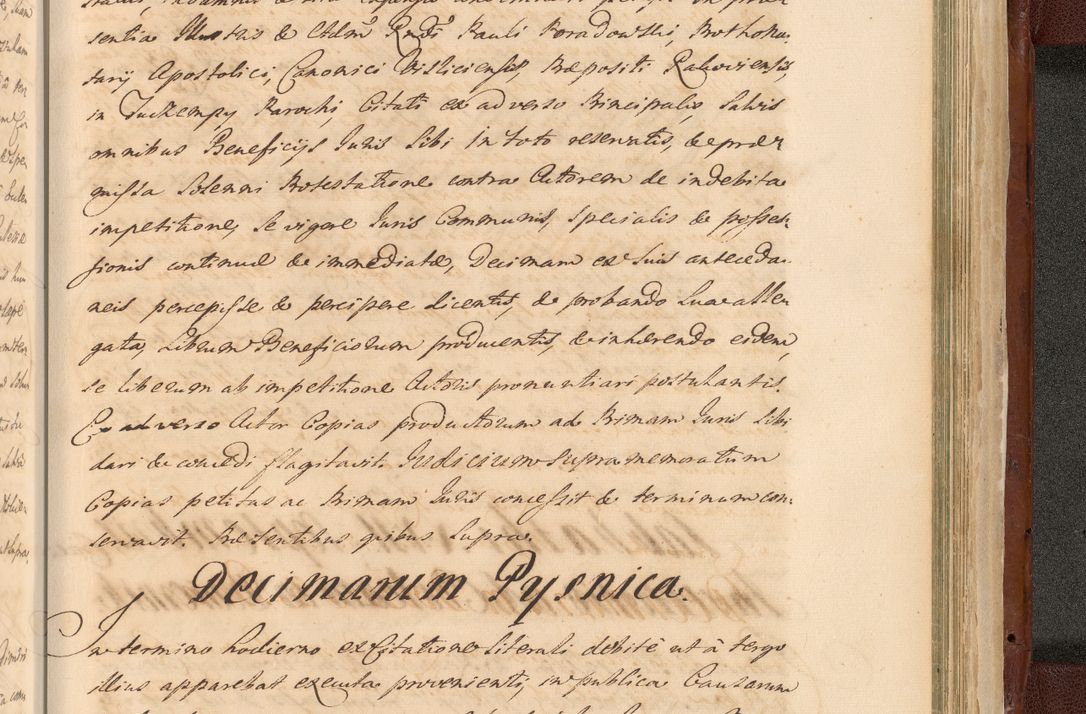 sentia Illustris & Adm. Rndi Pauli Poradowski, Prothono,
tarij Apostolici, Canonici Visliciensis, Præpositi Rakoviensis,
in Tuczempy Parochi, Citati ex adverso Principalis, Salvis
omnibus Beneficijs Iuris Sibi in toto reservatis, & præ
missa Solenni Protestatione contra Actorem de indebita
impetitione, se vigore Iuris Communis, specialis & posses:
sionis continuæ & immediatæ, Decimam ex Suis anteceda
neis percepisse & percipere dicentis, & probando Sua alle,
gata, Librum Beneficiorum producentis, & inhærendo eidem,
se liberum ab impetitione Actoris pronuntiari postulantis.
Ex adverso Actor Copias productorum ad Primam Iuris Sibi
dari & concedi flagitavit. Iudicium supramemoratum
Copias petitas ac Primam Iuris concessit & terminum con:
servavit. Præsentibus quibus supra.
Decimarum Pysnica.
In termino hodierno ex Citatione literali debitè ut à tergo
illius apparebat executa provenienti, in publica Causarum